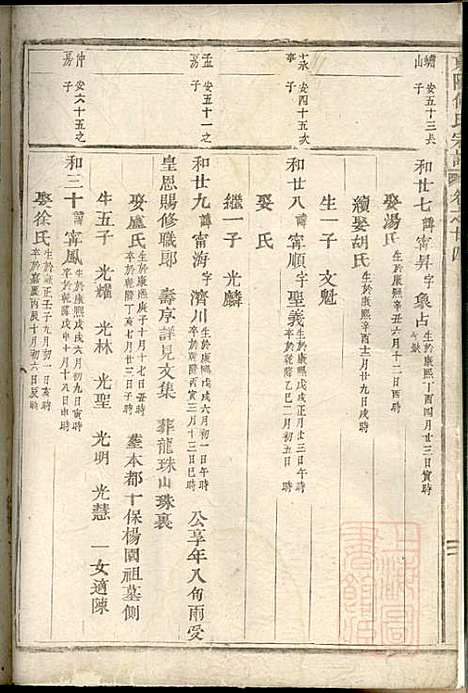 和廿七 諱甯昇 字象占 生於康熙丁酉四月廿三日寅時
娶湯氏 生於康熙辛丑六月十二日酉時
續娶胡氏 生於康熙辛酉十二月廿九日戌時
生一子 文魁
安四十五次子
和廿八 諱甯順 字聖義 生於康熙戊戌正月廿三日辰時 卒於乾隆乙巳二月初一日午時
娶 氏
繼一子 光麟
孟房 安五十一之子
和廿九 諱甯海 字濟川 生於康熙戊戌六月初一日午時 三月十三日巳時 公享年八旬雨受
皇恩賜修職郎 壽享詳見文集 葬龍珠山珠裏
娶盧氏 生於康熙庚子十月十七日丑時 卒於乾隆丁亥七月廿三日子時 葬本都十保楊園祖墓側
仲房 安六十五之子
和三十 諱甯鳳 生於康熙戊戌六月初九日寅時 卒於乾隆戊申十月十八日申時
生五子 光耀 光林 光聖 光明 光慧 一女適陳
娶徐氏 生於雍正壬子九月初三日亥時 卒於嘉慶丙辰十月初六日亥時